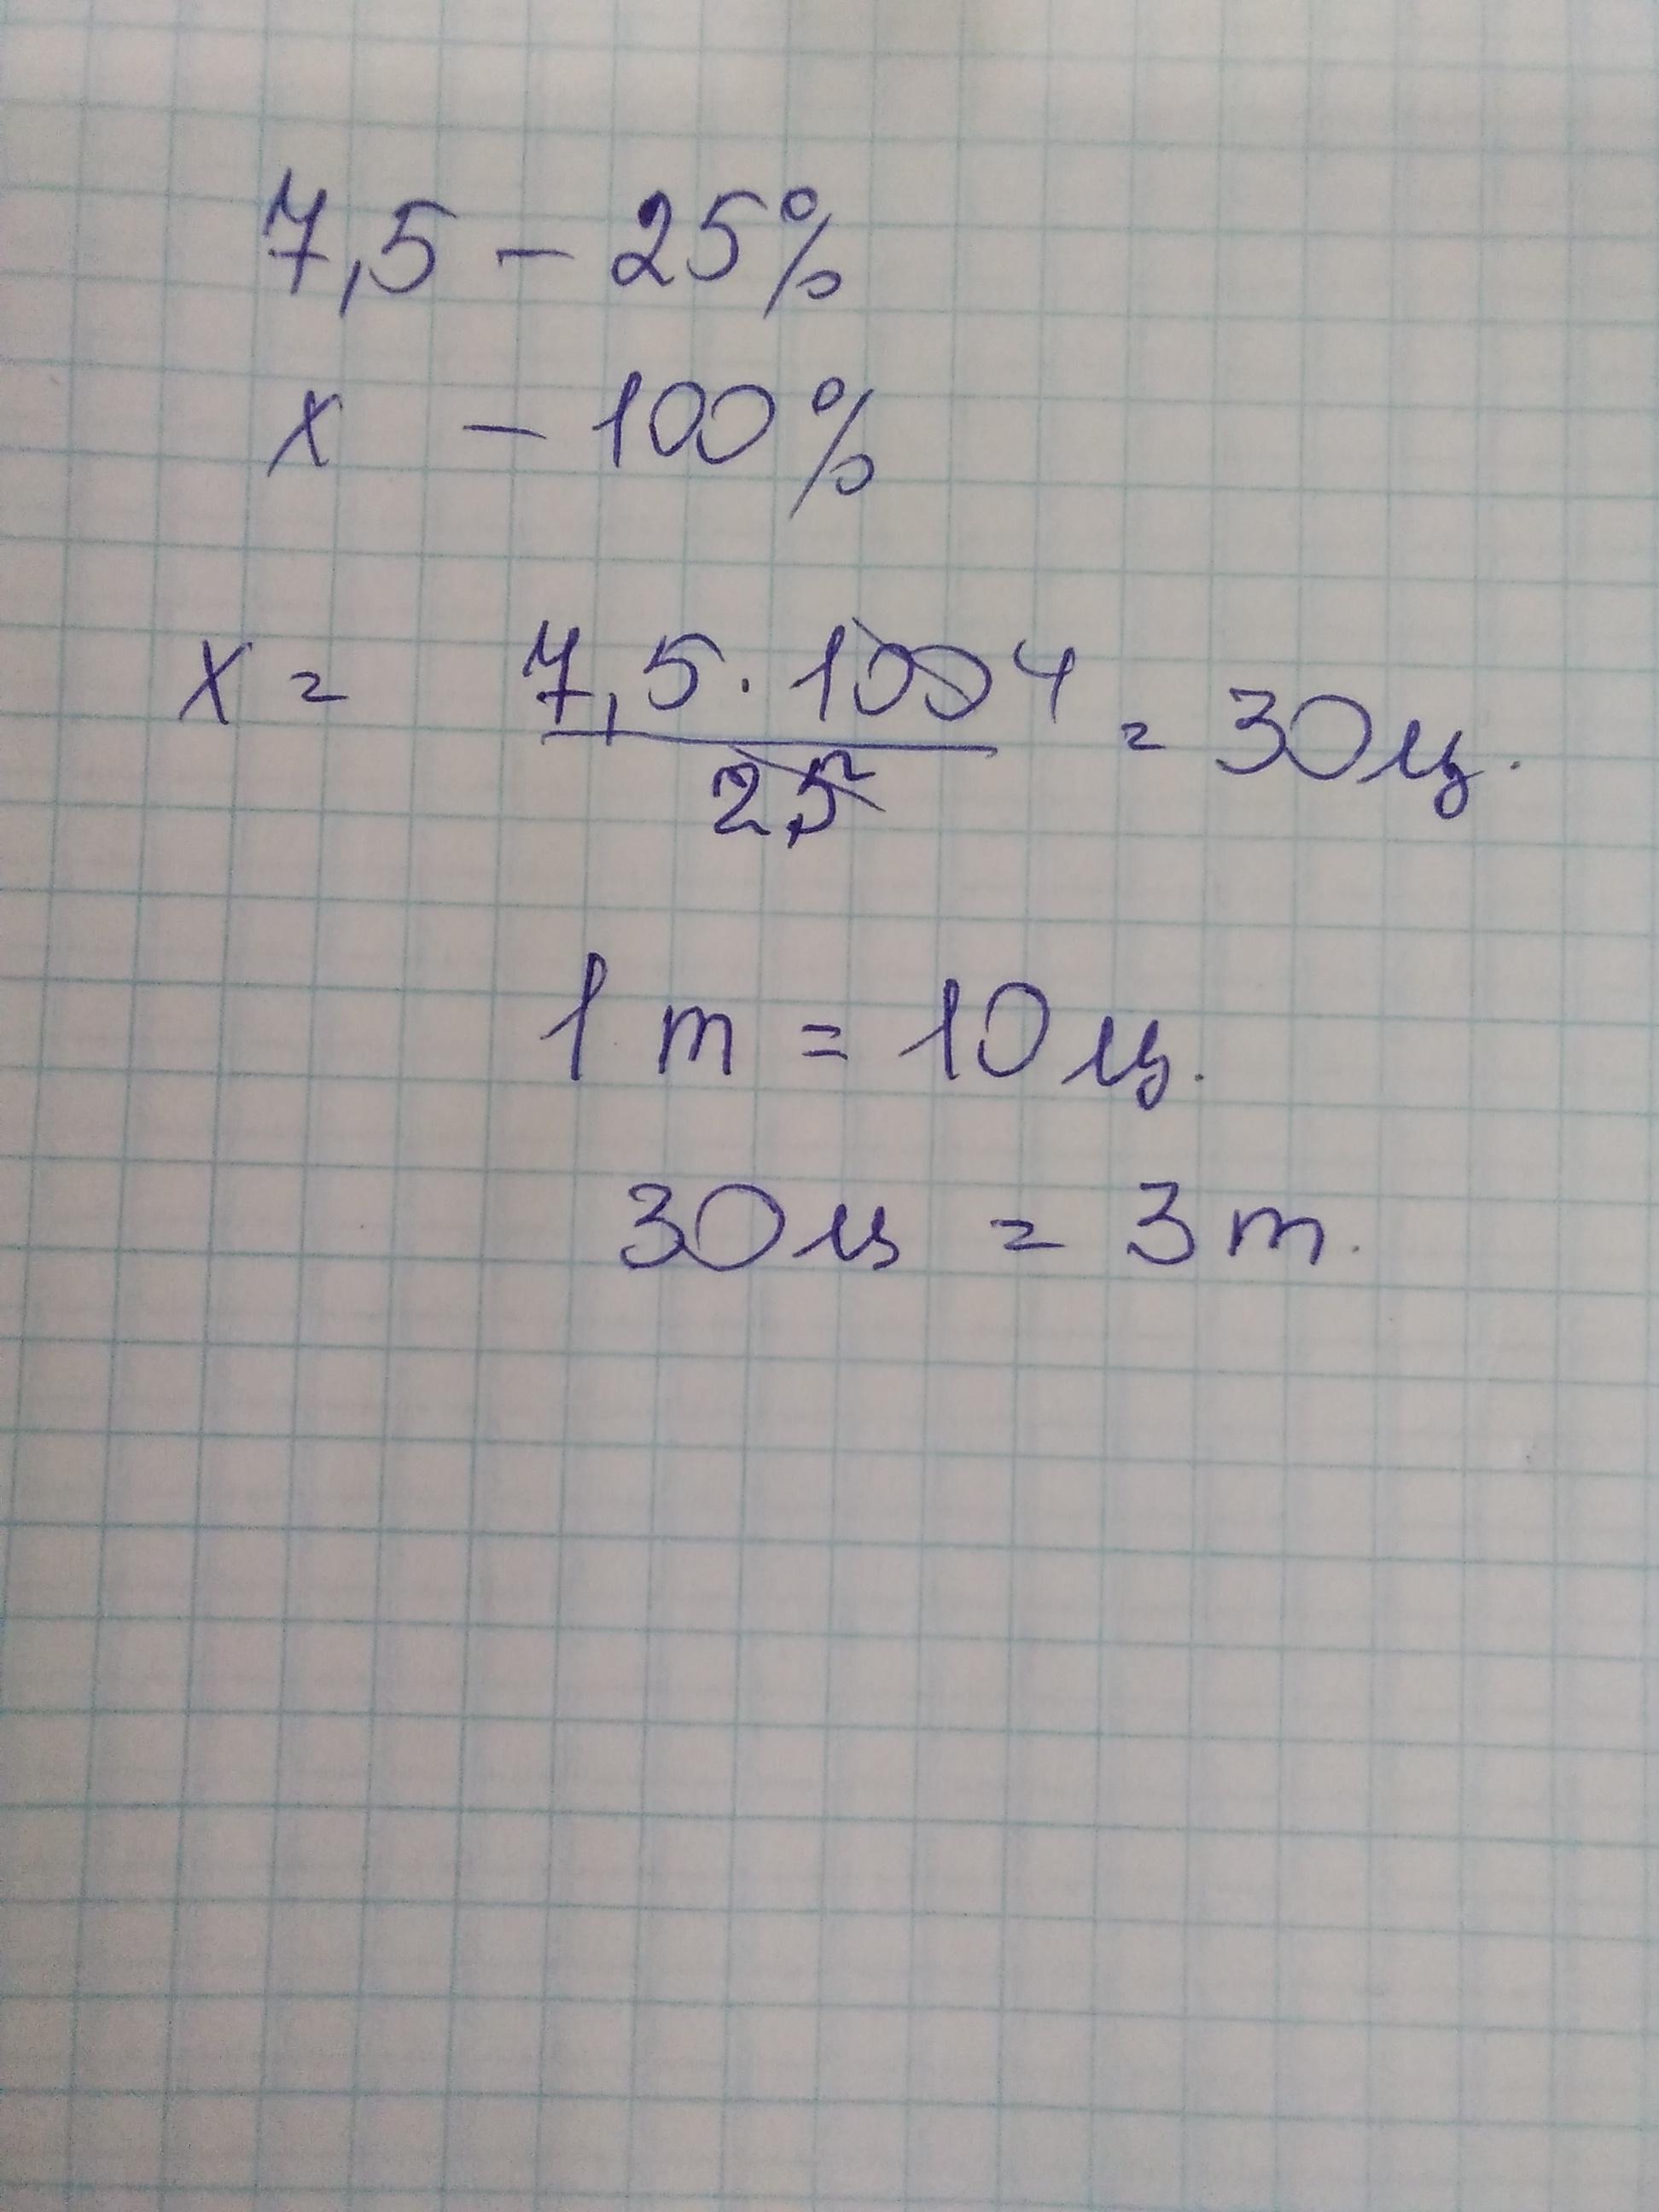 7,5 - 25%
x - 100%
x = 7,5 · 100 4 / 25 = 30 ц.
1 т = 10 ц.
30 ц = 3 т.